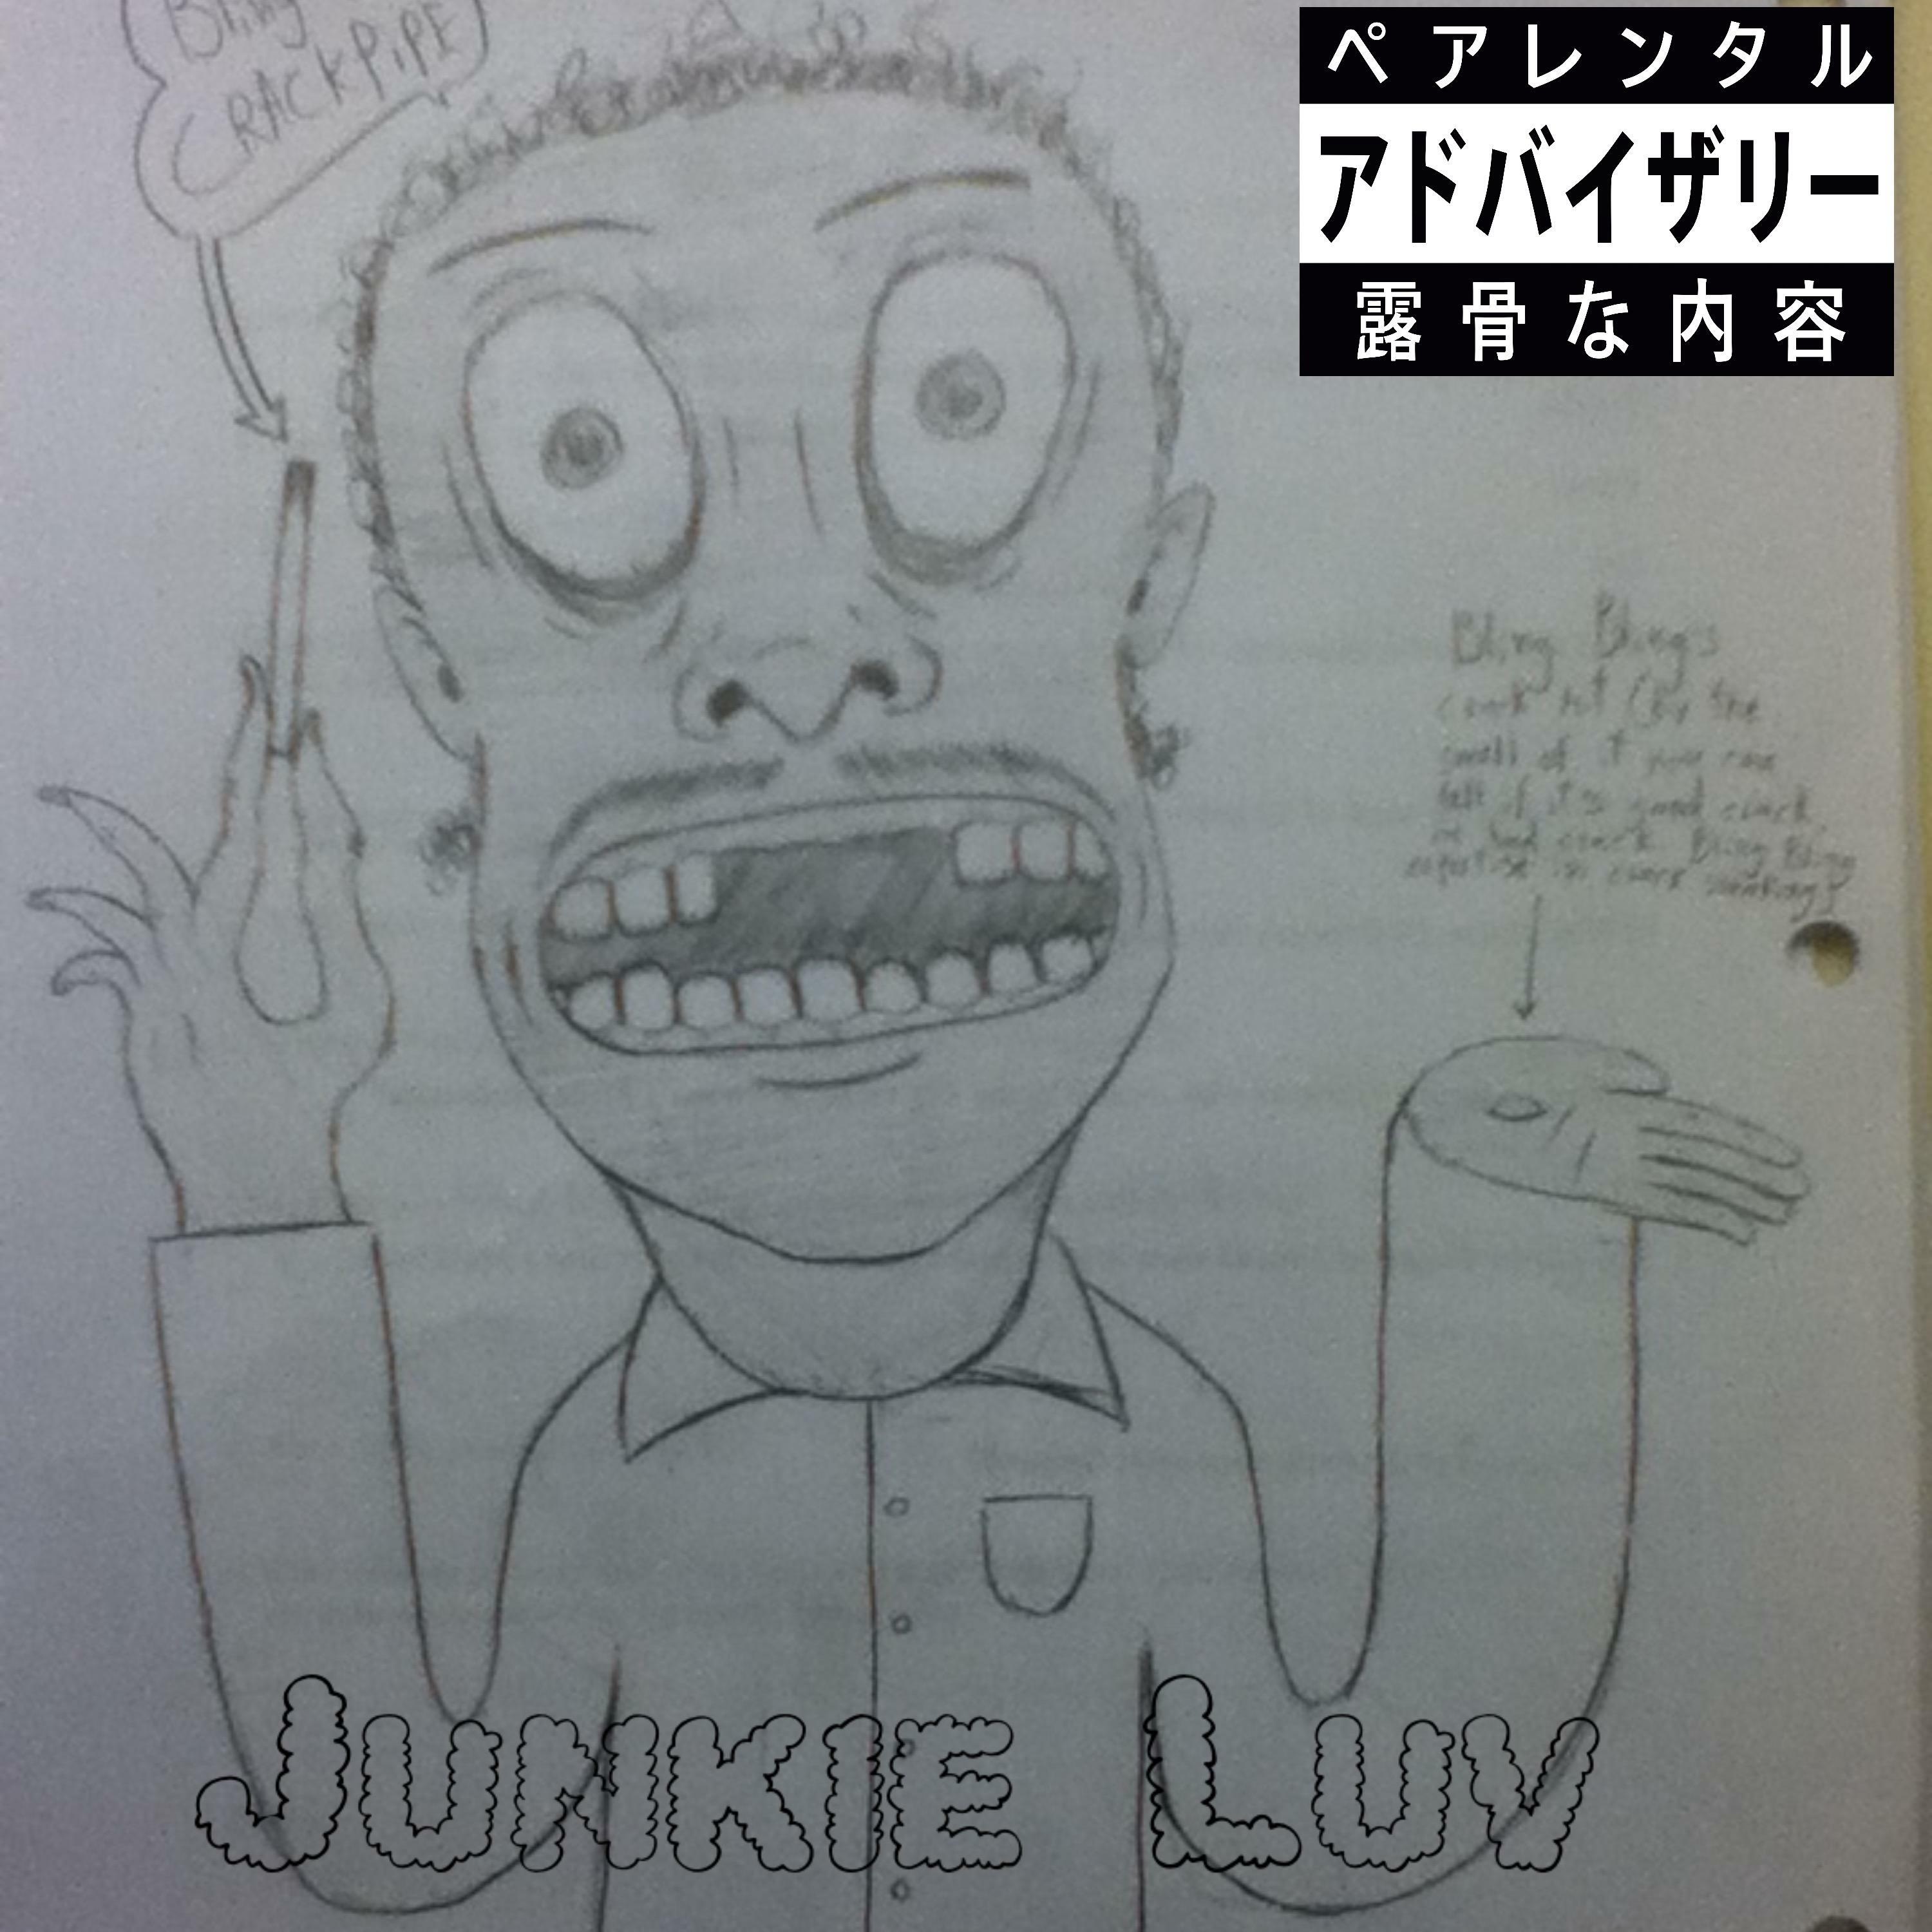 Bling
CRACKPIPE
ペアレンタル
アドバイザリー
露骨な内容
Bling Bling's
smell of it you can
tell if it's good crack
or bad crack. Bling Bling
JUNKIE LUV